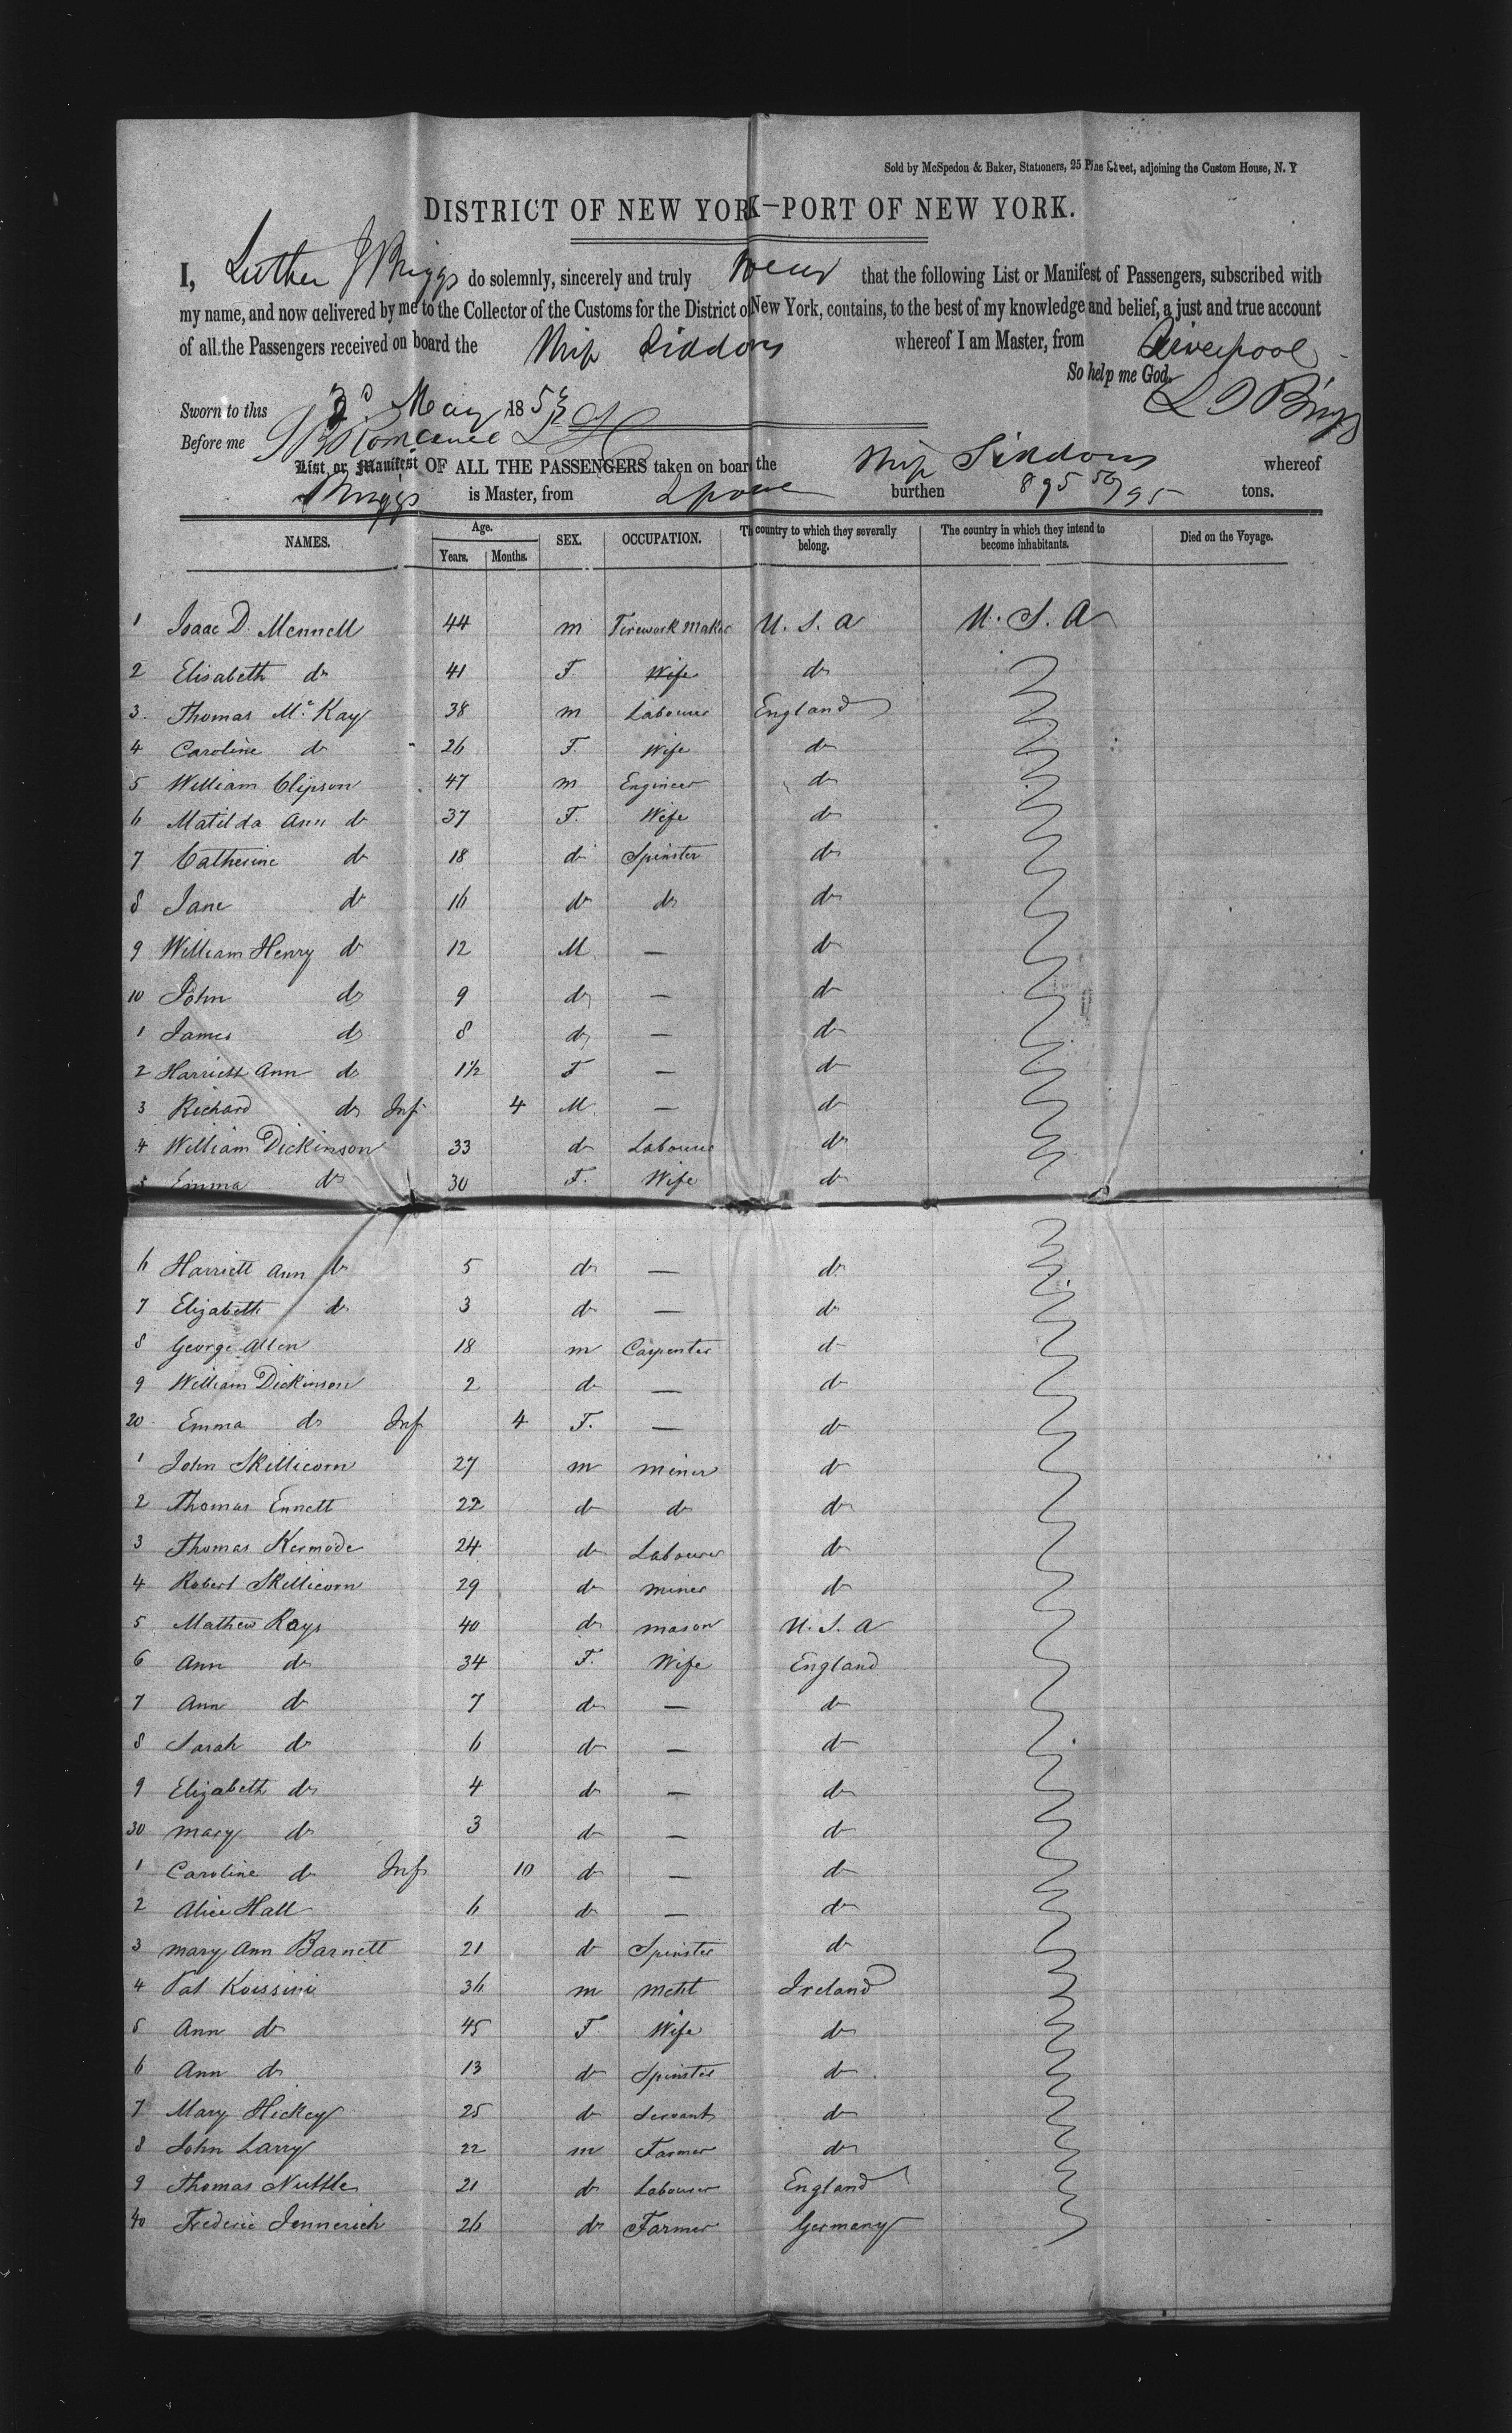 Sold by McSpedon & Baker, Stationers, 25 Pine Street, adjoining the Custom House, N. Y
DISTRICT OF NEW YORK—PORT OF NEW YORK.
I, Luther J Briggs do solemnly, sincerely and truly swear that the following List or Manifest of Passengers, subscribed with
my name, and now delivered by me to the Collector of the Customs for the District of New York, contains, to the best of my knowledge and belief, a just and true account
of all the Passengers received on board the Ship Siddons whereof I am Master, from Liverpool
So help me God.
Sworn to this 3d May 1853 L J Briggs
Before me
List or Manifest OF ALL THE PASSENGERS taken on board the Ship Siddons whereof
Briggs is Master, from Lpool burthen 895 50/95 tons.
NAMES. Age. Years. Months. SEX. OCCUPATION. The country to which they severally belong. The country in which they intend to become inhabitants. Died on the Voyage.
1 Isaac D. Mennell 44 m Firework Maker U. S. A U. S. A
2 Elisabeth do 41 F. Wife do
3. Thomas Mc Kay 38 m Labourer England
4 Caroline do 26 F. Wife do
5 William Clipson 47 m Engineer do
6 Matilda Ann do 37 F. Wife do
7 Catherine do 18 do Spinster do
8 Jane do 16 do do do
9 William Henry do 12 M — do
10 John do 9 do — do
1 James do 8 do — do
2 Harriett Ann do 1½ F — do
3 Richard do Inf 4 M — do
4 William Dickinson 33 do Labourer do
5 Emma do 30 F. Wife do
6 Harriett Ann do 5 do — do
7 Elizabeth do 3 do — do
8 George Allen 18 m Carpenter do
9 William Dickinson 2 do — do
20 Emma do Inf 4 F. — do
1 John Skillicorn 27 m miner do
2 Thomas Ennett 22 do do do
3 Thomas Kermode 24 do Labourer do
4 Robert Skillicorn 29 do miner do
5 Mathew Kays 40 do mason U. S. A
6 Ann do 34 F. Wife England
7 Ann do 7 do — do
8 Sarah do 6 do — do
9 Elizabeth do 4 do — do
30 Mary do 3 do — do
1 Caroline do Inf 10 do — do
2 Alice Hall 6 do — do
3 Mary Ann Barnett 21 do Spinster do
4 Pat 36 m Mcht Ireland
5 Ann do 45 F Wife do
6 Ann do 13 do Spinster do
7 Mary Hickey 25 do Servant do
8 John Larry 22 m Farmer do
9 Thomas Nuttle 21 do Labourer England
40 Frederic Jennerich 26 do Farmer Germany